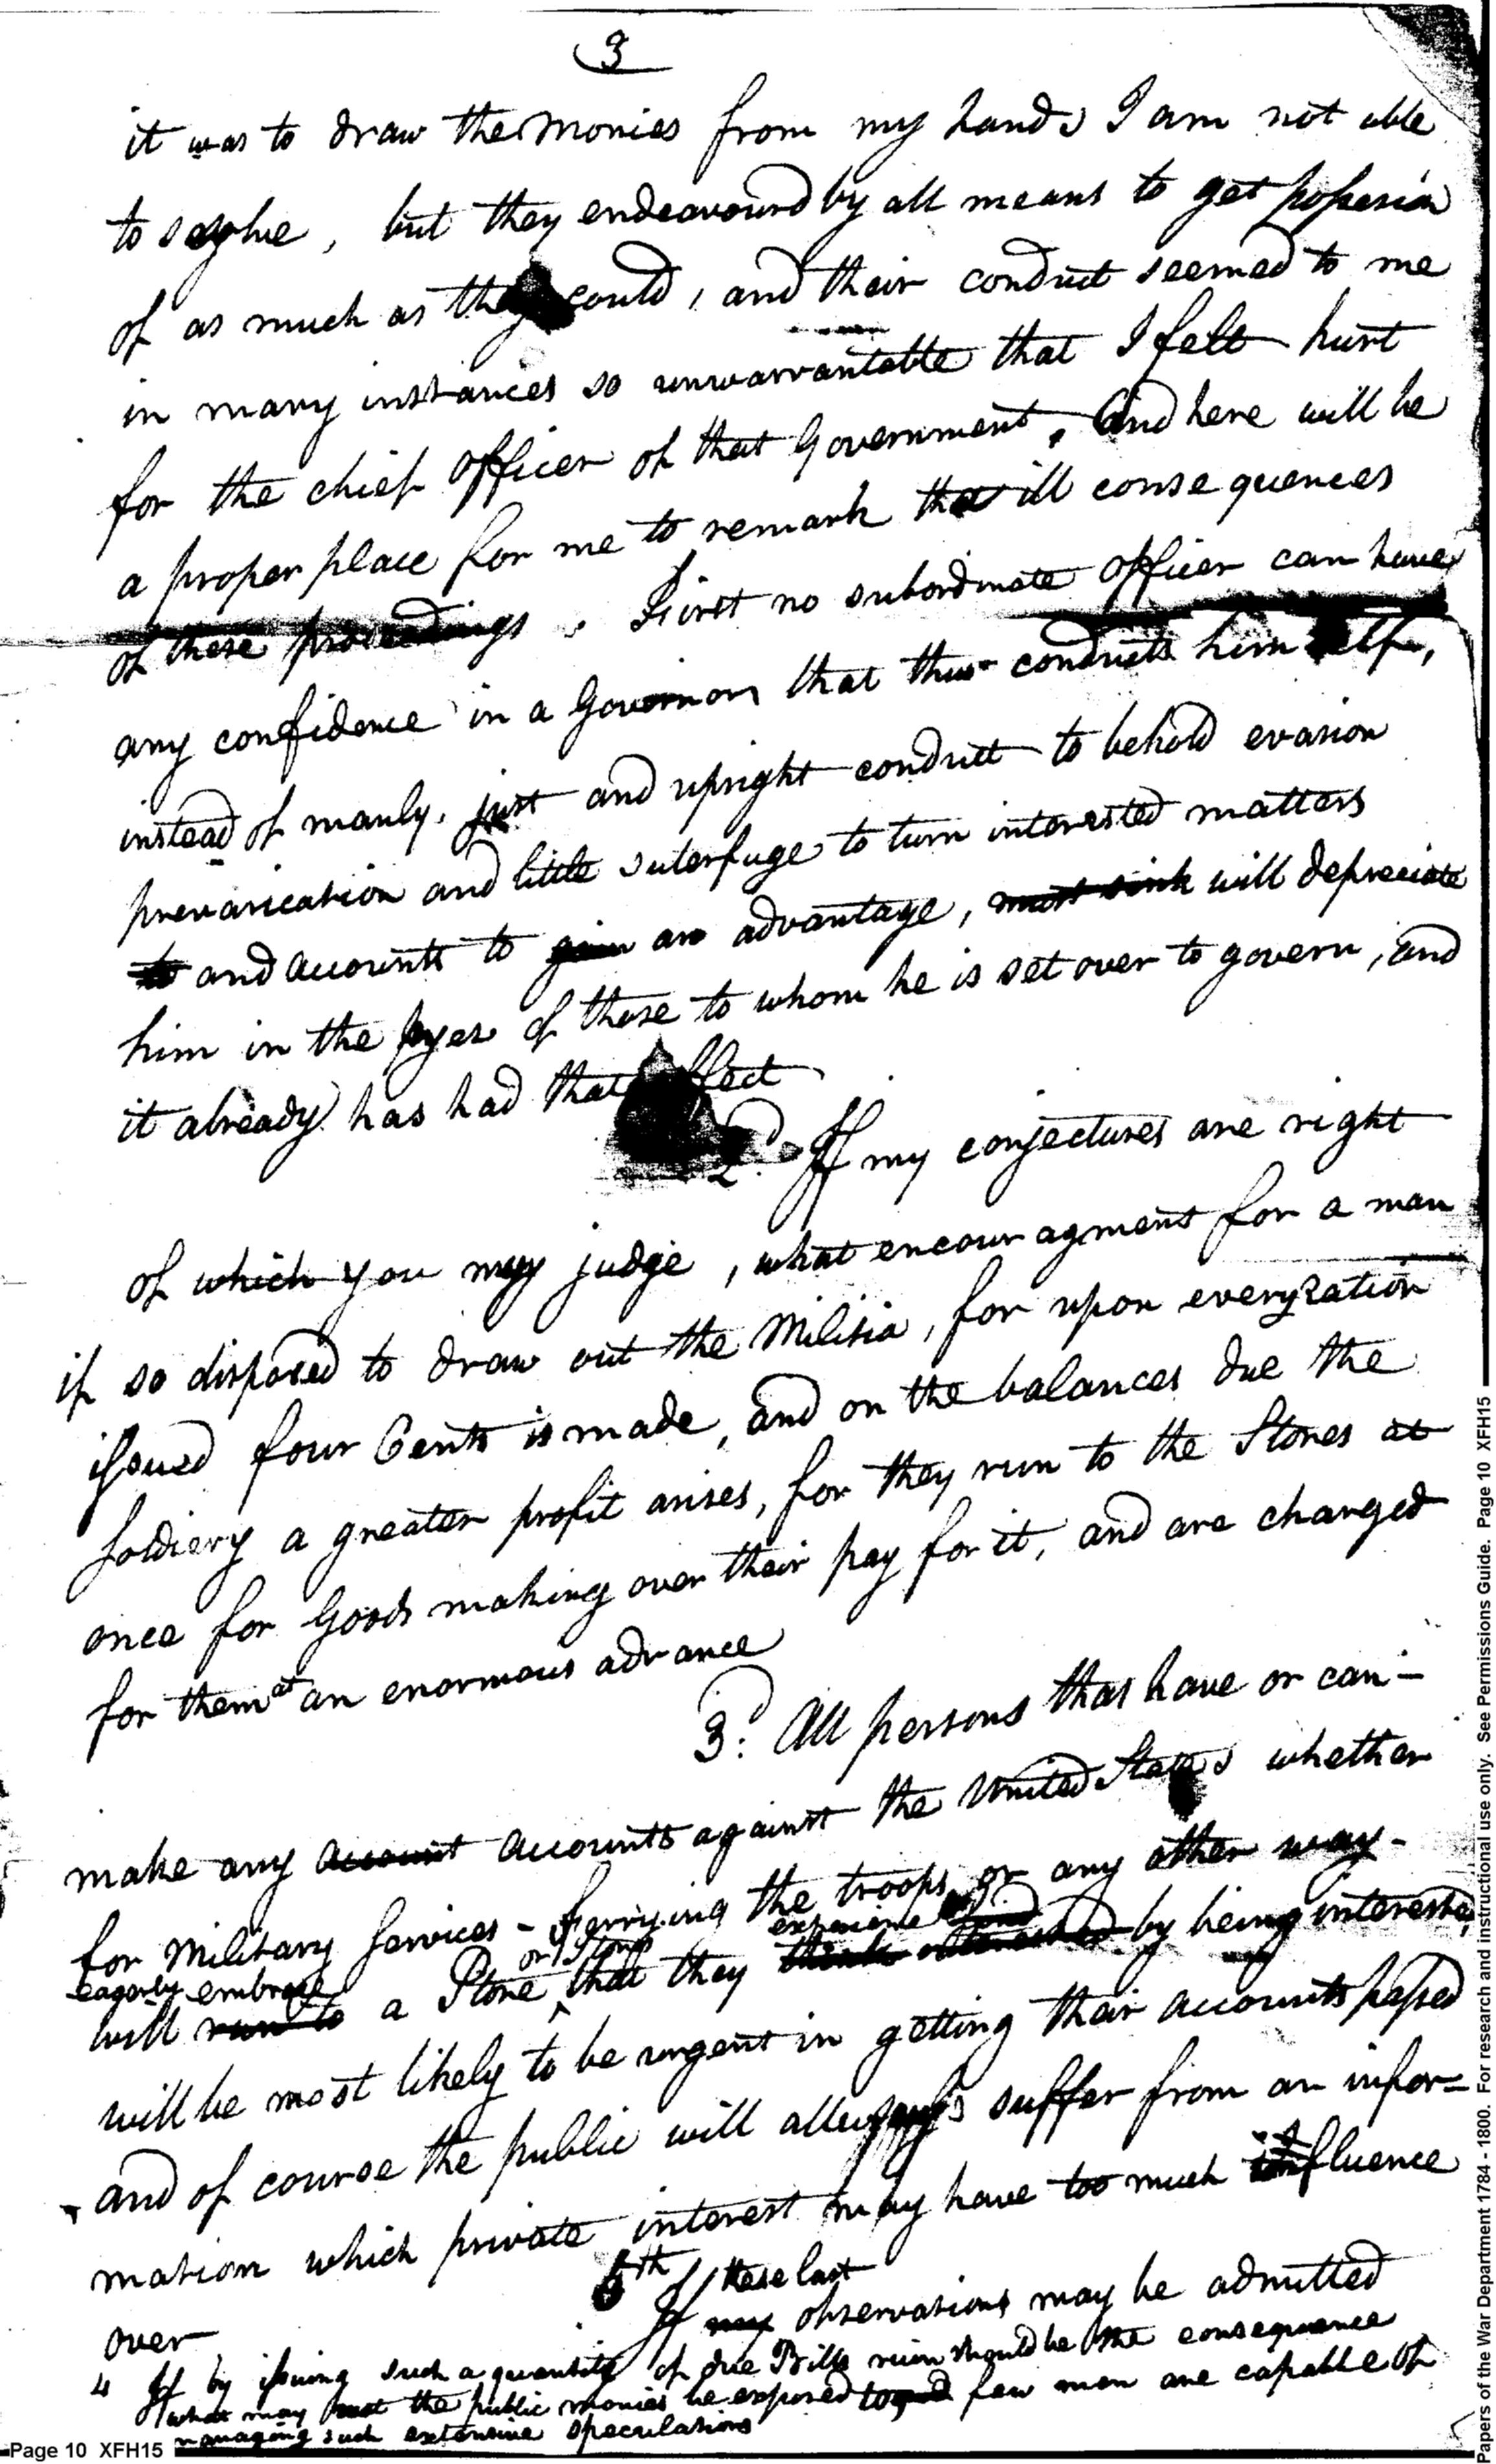 3
it was to draw the monies from my hands I am not able
to say, but they endeavoured by all means to get possesion
of as much as they could, and their conduct seemed to me
in many instances so unwarrantable that I felt hurt
for the chief officer of that Government, And here will be
a proper place for me to remark the ill consequences
of these proceedings. First no subordinate officer can have
any confidence in a Governor that thus conducts himself,
instead of manly, just and upright conduct to behold evasion
prevarication and little suterfuge to turn interested matters
to and accounts to gain an advantage, must sink will depreciate
him in the eyes of those to whom he is set over to govern, and
it already has had that effect
2d. If my conjectures are right
of which you may judge, what encouragment for a man
if so disposed to draw out the Militia, for upon every ration
issued four Cents is made, and on the balances due the
soldiery a greater profit arises, for they run to the Stores at
once for Goods making over their pay for it, and are charged
for them at an enormous advance
3d. All persons that have or can-
make any account accounts against the United States whether
for Military Services - ferrying the troops or any other way-
eagerly embrace or Stores
will run to a Store that they think by being interested
will be most likely to be urgent in getting their accounts passed
and of course the public will suffer from an infor=
mation which private interest may have too much influence
5th If my these last observations may be admitted
over
4 If by issuing such a quantity of due Bills ruin should be the consequence
what may not the public monies be exposed to few men are capable of
managing such extensive speculations
Page 10 XFH15
Papers of the War Department 1784 - 1800. For research and instructional use only. See Permissions Guide. Page 10 XFH15